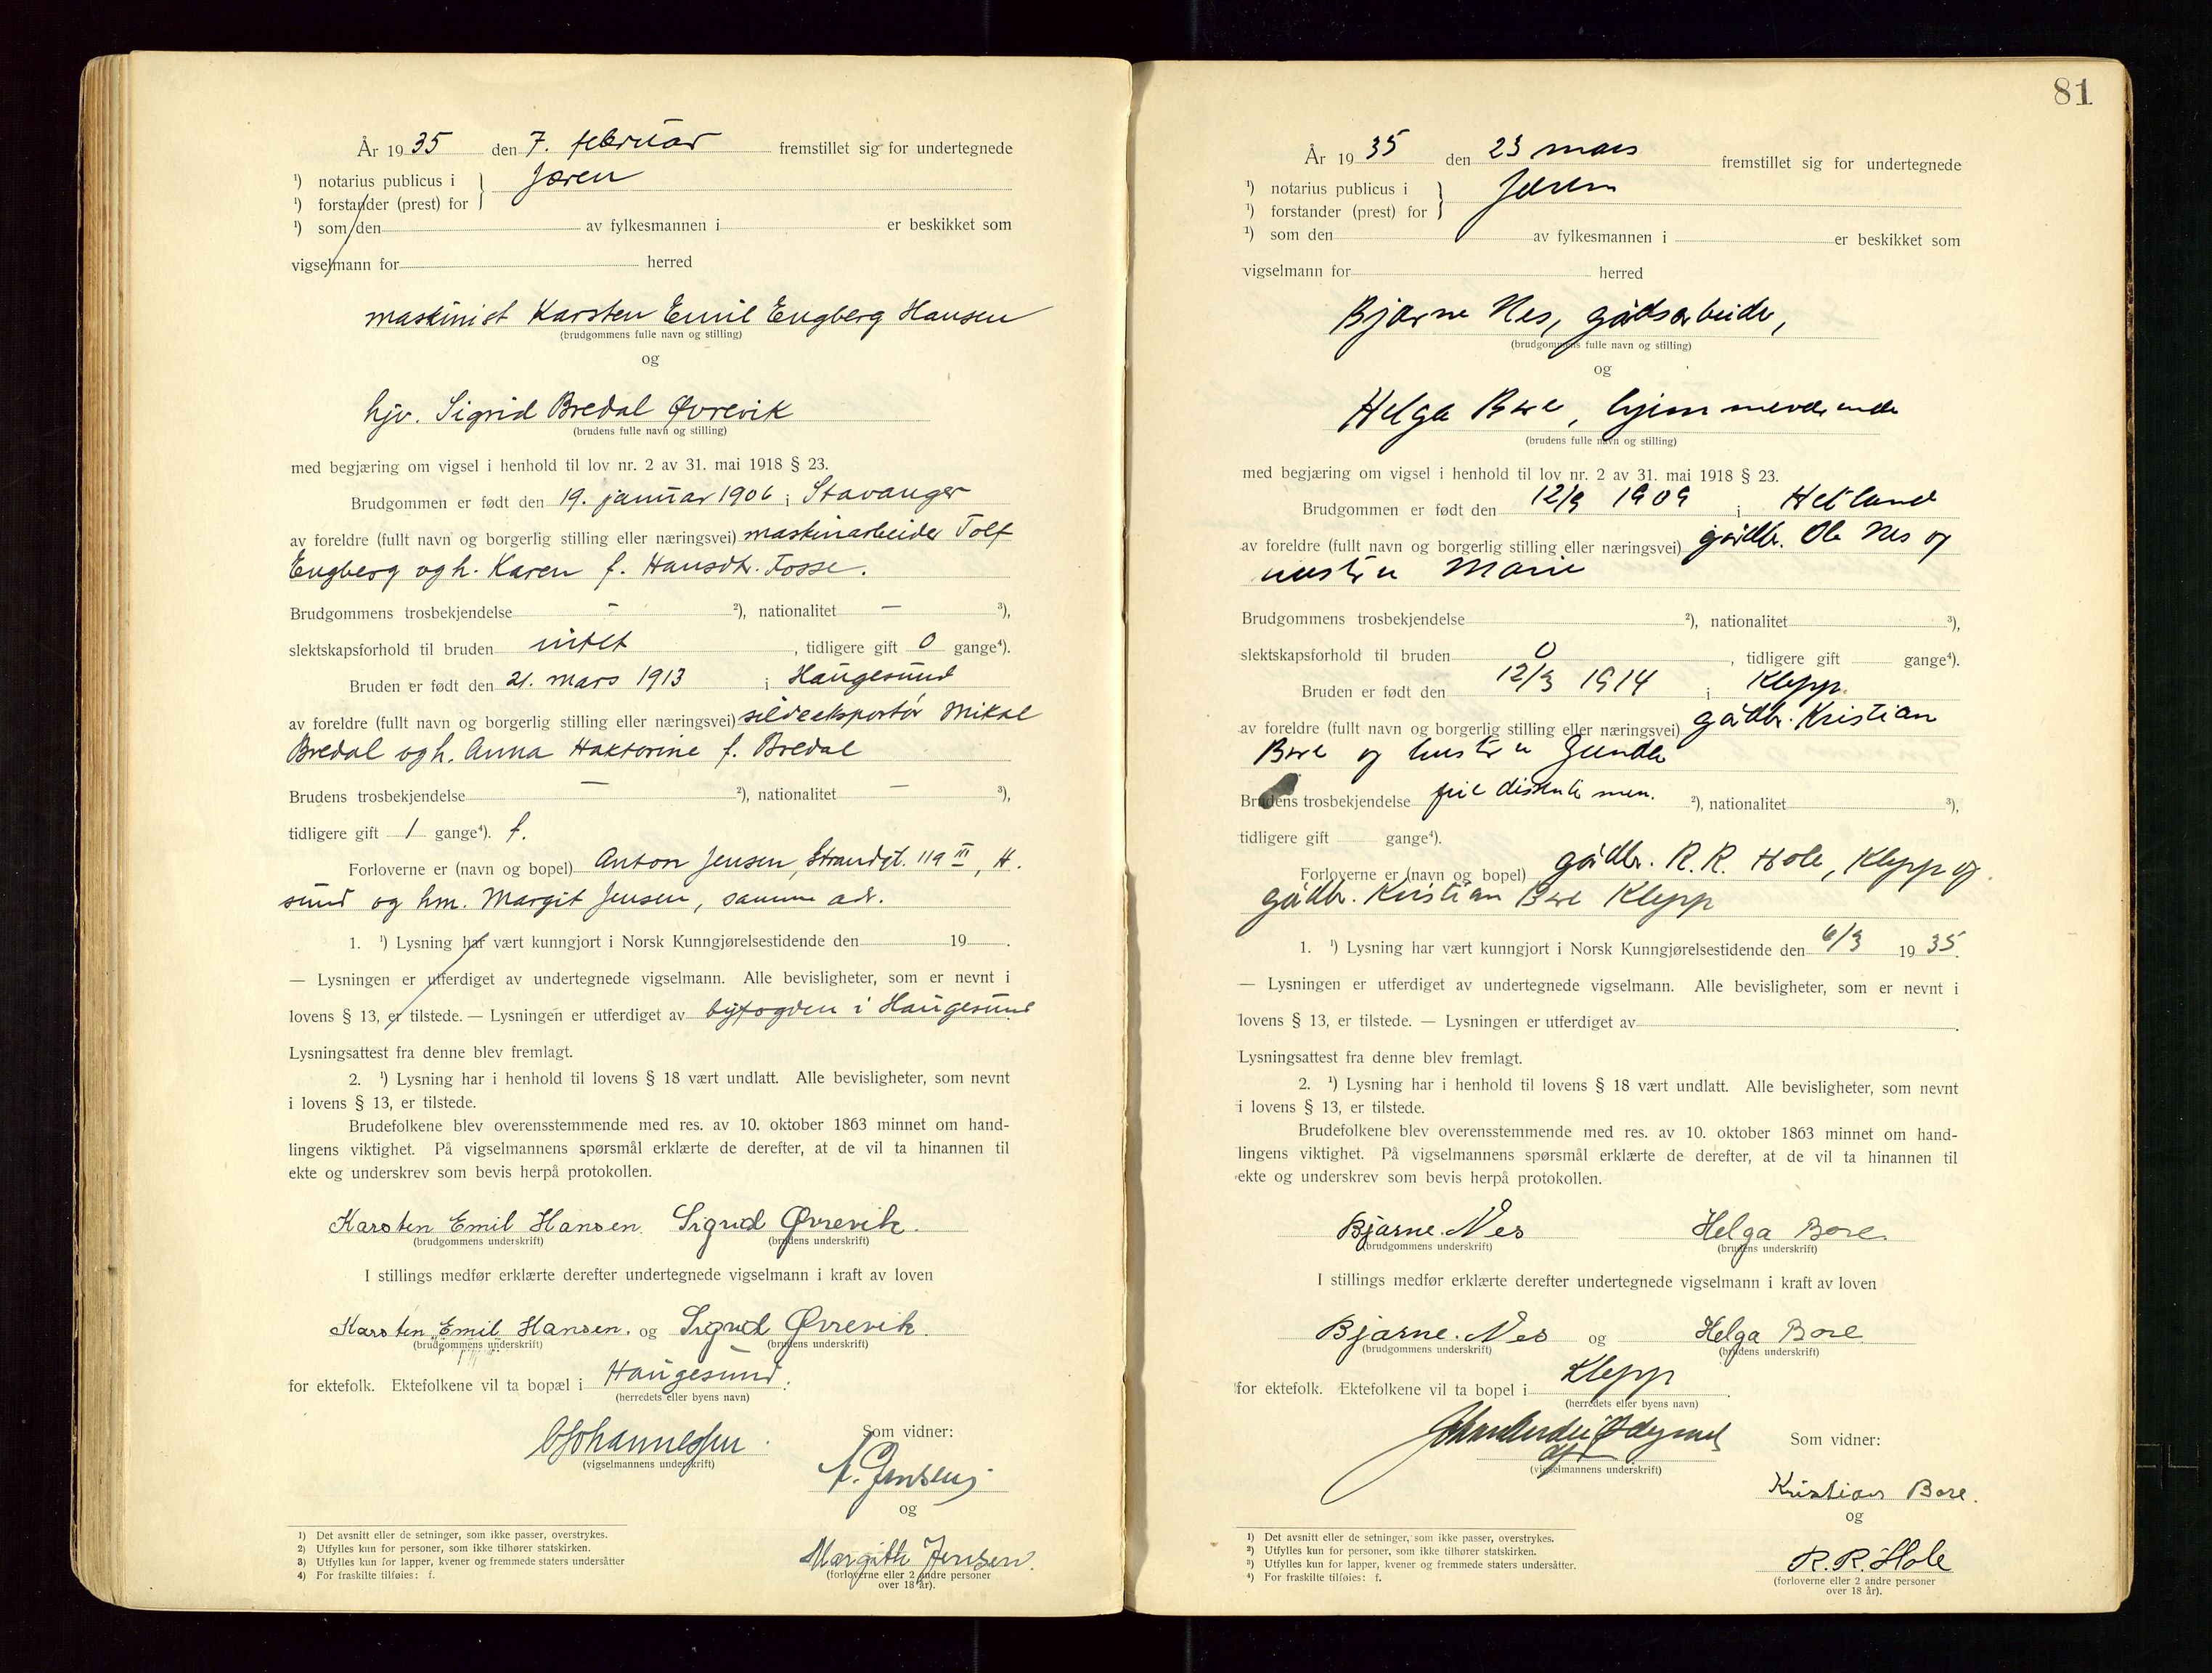 År 1935 den 7. februar fremstillet sig for undertegnede
¹) notarius publicus i } Jæren
¹) forstander (prest) for
¹) som den av fylkesmannen i er beskikket som
vigselmann for herred
maskinist Karsten Emil Engberg Hansen
(brudgommens fulle navn og stilling)
og
hjv. Sigrid Bredal Øvrevik
(brudens fulle navn og stilling)
med begjæring om vigsel i henhold til lov nr. 2 av 31. mai 1918 § 23.
Brudgommen er født den 19. januar 1906 i Stavanger
av foreldre (fullt navn og borgerlig stilling eller næringsvei) maskinarbeider Tolf
Engberg og h. Karen f. Hansdtr. Fosse.
Brudgommens trosbekjendelse - ²), nationalitet — ³),
slektskapsforhold til bruden intet , tidligere gift 0 gange⁴).
Bruden er født den 21. mars 1913 i Haugesund
av foreldre (fullt navn og borgerlig stilling eller næringsvei) sildeeksportør Mikal
Bredal og h. Anna Haktorine f. Bredal
Brudens trosbekjendelse — ²), nationalitet — ³),
tidligere gift 1 gange⁴). f.
Forloverne er (navn og bopel) Anton Jensen, Strandgt. 119 III, H.
sund og hm. Margit Jensen, samme adr.
1. ¹) Lysning har vært kunngjort i Norsk Kunngjørelsestidende den 19 .
— Lysningen er utferdiget av undertegnede vigselmann. Alle bevisligheter, som er nevnt i
lovens § 13, er tilstede. — Lysningen er utferdiget av byfogden i Haugesund
Lysningsattest fra denne blev fremlagt.
2. ¹) Lysning har i henhold til lovens § 18 vært undlatt. Alle bevisligheter, som nevnt
i lovens § 13, er tilstede.
Brudefolkene blev overensstemmende med res. av 10. oktober 1863 minnet om hand-
lingens viktighet. På vigselmannens spørsmål erklærte de derefter, at de vil ta hinannen til
ekte og underskrev som bevis herpå protokollen.
Karsten Emil Hansen. Sigrid Øvrevik.
(brudgommens underskrift) (brudens underskrift)
I stillings medfør erklærte derefter undertegnede vigselmann i kraft av loven
Karsten Emil Hansen. og Sigrid Øvrevik.
(brudgommens underskrift) (brudens underskrift)
for ektefolk. Ektefolkene vil ta bopæl i Haugesund.
(herredets eller byens navn)
Johannessen
(vigselmannens underskrift)
Som vidner:
A. Jensen
og
Margith Jensen.
(forloverne eller 2 andre personer
over 18 år).
1) Det avsnitt eller de setninger, som ikke passer, overstrykes.
2) Utfylles kun for personer, som ikke tilhører statskirken.
3) Utfylles kun for lapper, kvener og fremmede staters undersåtter
4) For fraskilte tilføies: f.
81
År 1935 den 23 mars fremstillet sig for undertegnede
¹) notarius publicus i } Jæren
¹) forstander (prest) for
¹) som den av fylkesmannen i er beskikket som
vigselmann for herred
Bjarne Nes, gårdsarbeider,
(brudgommens fulle navn og stilling)
og
Helga Bore, hjemmeværende
(brudens fulle navn og stilling)
med begjæring om vigsel i henhold til lov nr. 2 av 31. mai 1918 § 23.
Brudgommen er født den 12/9 1909 i Hetland
av foreldre (fullt navn og borgerlig stilling eller næringsvei) gårdbr. Ole Nes og
hustru Marie
Brudgommens trosbekjendelse ²), nationalitet ³),
slektskapsforhold til bruden 0 , tidligere gift gange⁴).
Bruden er født den 12/3 1914 i Klepp.
av foreldre (fullt navn og borgerlig stilling eller næringsvei) gårdbr. Kristian
Bore og hustru Gunda
Brudens trosbekjendelse fri dissenter men. ²), nationalitet ³),
tidligere gift gange⁴).
Forloverne er (navn og bopel) gårdbr. R. R. Hole, Klepp og
gårdbr. Kristian Bore Klepp
1. ¹) Lysning har vært kunngjort i Norsk Kunngjørelsestidende den 6/3 1935.
— Lysningen er utferdiget av undertegnede vigselmann. Alle bevisligheter, som er nevnt i
lovens § 13, er tilstede. — Lysningen er utferdiget av .
Lysningsattest fra denne blev fremlagt.
2. ¹) Lysning har i henhold til lovens § 18 vært undlatt. Alle bevisligheter, som nevnt
i lovens § 13, er tilstede.
Brudefolkene blev overensstemmende med res. av 10. oktober 1863 minnet om hand-
lingens viktighet. På vigselmannens spørsmål erklærte de derefter, at de vil ta hinannen til
ekte og underskrev som bevis herpå protokollen.
Bjarne. Nes Helga Bore.
(brudgommens underskrift) (brudens underskrift)
I stillings medfør erklærte derefter undertegnede vigselmann i kraft av loven
Bjarne. Nes og Helga Bore
(brudgommens underskrift) (brudens underskrift)
for ektefolk. Ektefolkene vil ta bopel i Klepp.
(herredets eller byens navn)
(vigselmannens underskrift)
Som vidner:
Kristian Bore.
og
R. R. Hole
(forloverne eller 2 andre personer
over 18 år).
1) Det avsnitt eller de setninger, som ikke passer, overstrykes.
2) Utfylles kun for personer, som ikke tilhører statskirken.
3) Utfylles kun for lapper, kvener og fremmede staters undersåtter.
4) For fraskilte tilføies: f.